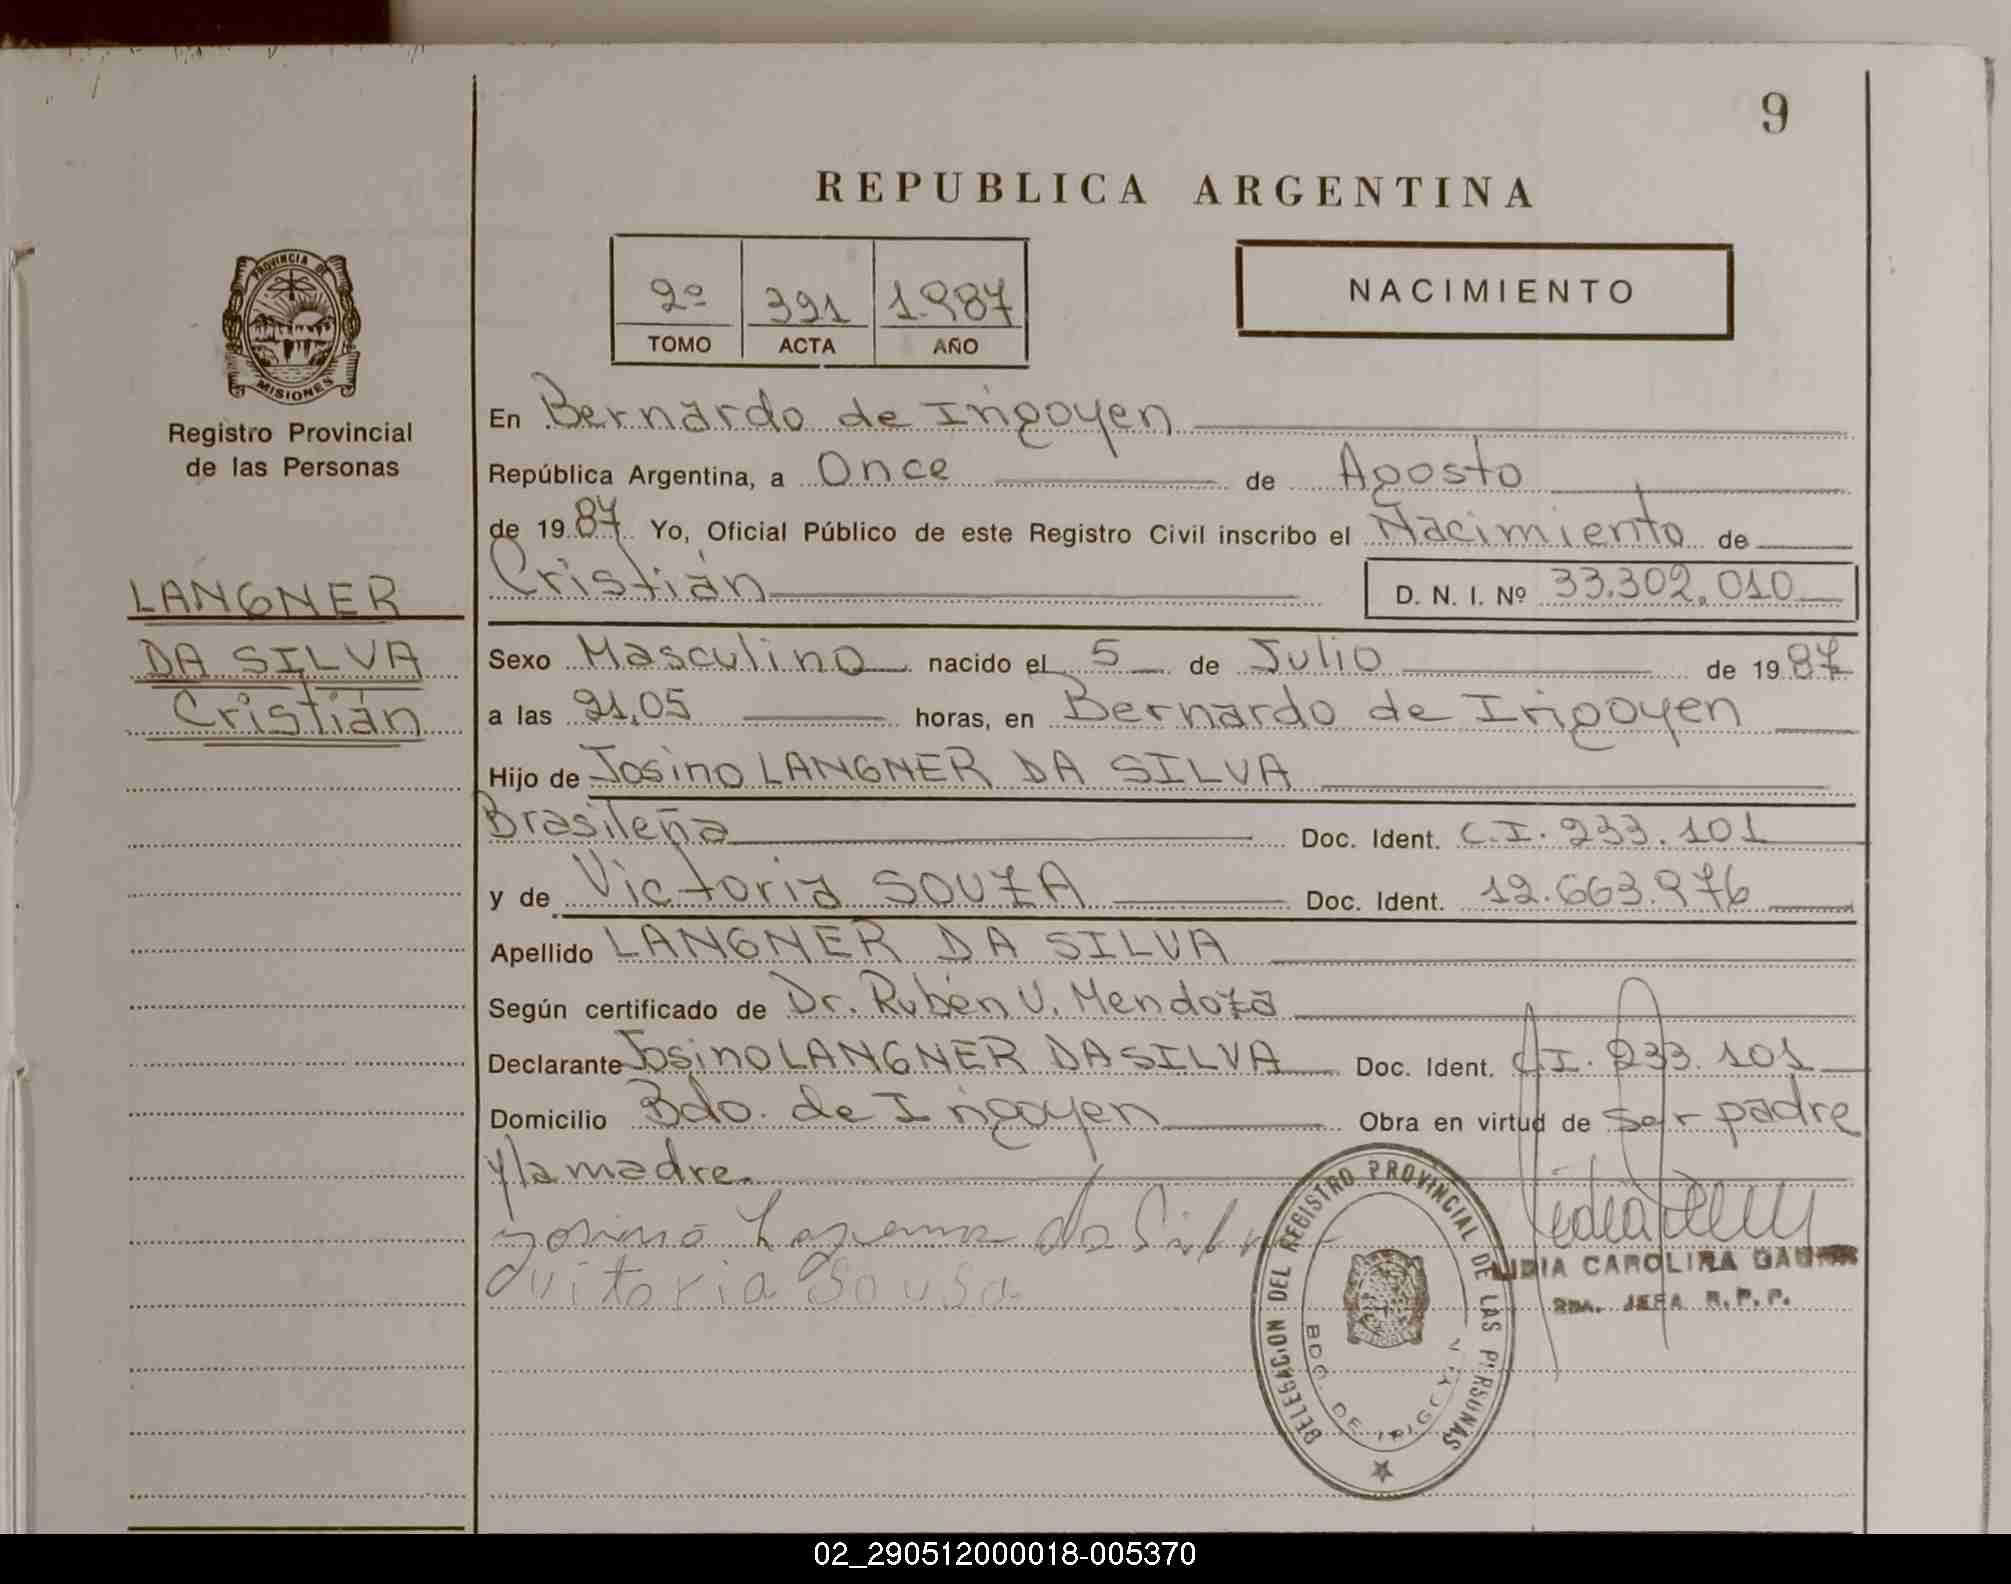 9
REPUBLICA ARGENTINA
PROVINCIA DE
MISIONES
Registro Provincial
de las Personas
2º 391 1.987
TOMO ACTA AÑO
NACIMIENTO
LANGNER
DA SILVA
Cristián
En Bernardo de Irigoyen
República Argentina, a Once de Agosto
de 19 87 Yo, Oficial Público de este Registro Civil inscribo el Nacimiento de
Cristián D. N. I. Nº 33.302.010
Sexo Masculino nacido el 5 de Julio de 19 87
a las 21,05 horas, en Bernardo de Irigoyen
Hijo de Josino LANGNER DA SILVA
Brasileña Doc. Ident. C.I. 233.101
y de Victoria SOUZA Doc. Ident. 12.663.976
Apellido LANGNER DA SILVA
Según certificado de Dr. Rubén U. Mendoza
Declarante Josino LANGNER DA SILVA Doc. Ident. C.I. 233.101
Domicilio Bdo. de Irigoyen Obra en virtud de ser padre
y la madre.
da Silva
vitoria Sousa
DELEGACION DEL REGISTRO PROVINCIAL DE LAS PERSONAS
BDO. DE IRIGOYEN
LIDIA CAROLINA
JEFA R. P. P.
02_290512000018-005370